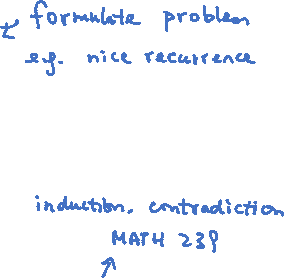 formulate problem
e.g. nice recurrence
induction, contradiction
MATH 239